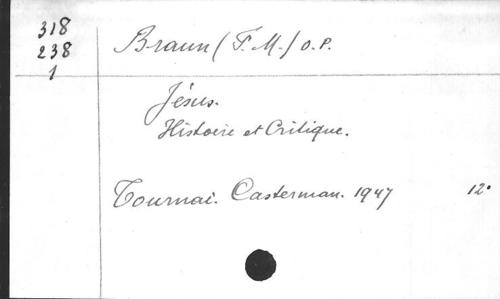 318
238
1
Braun (F. M.) O.P.
Jésus.
Histoire et Critique.
Tournai. Casterman. 1947 12°